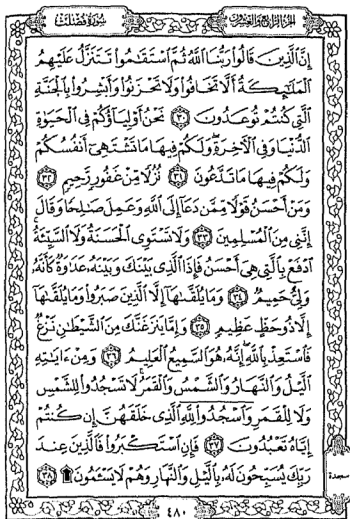 الجزء الرابع والعشرون
سورة فصلت
إِنَّ ٱلَّذِينَ قَالُوا۟ رَبُّنَا ٱللَّهُ ثُمَّ ٱسْتَقَٰمُوا۟ تَتَنَزَّلُ عَلَيْهِمُ
ٱلْمَلَٰٓئِكَةُ أَلَّا تَخَافُوا۟ وَلَا تَحْزَنُوا۟ وَأَبْشِرُوا۟ بِٱلْجَنَّةِ
ٱلَّتِى كُنتُمْ تُوعَدُونَ ٣٠ نَحْنُ أَوْلِيَآؤُكُمْ فِى ٱلْحَيَوٰةِ
ٱلدُّنْيَا وَفِى ٱلْءَاخِرَةِ وَلَكُمْ فِيهَا مَا تَشْتَهِىٓ أَنفُسُكُمْ
وَلَكُمْ فِيهَا مَا تَدَّعُونَ ٣١ نُزُلًا مِّنْ غَفُورٍ رَّحِيمٍ ٣٢
وَمَنْ أَحْسَنُ قَوْلًا مِّمَّن دَعَآ إِلَى ٱللَّهِ وَعَمِلَ صَٰلِحًا وَقَالَ
إِنَّنِى مِنَ ٱلْمُسْلِمِينَ ٣٣ وَلَا تَسْتَوِى ٱلْحَسَنَةُ وَلَا ٱلسَّيِّئَةُ
ٱدْفَعْ بِٱلَّتِى هِىَ أَحْسَنُ فَإِذَا ٱلَّذِى بَيْنَكَ وَبَيْنَهُۥ عَدَٰوَةٌ كَأَنَّهُۥ
وَلِىٌّ حَمِيمٌ ٣٤ وَمَا يُلَقَّىٰهَآ إِلَّا ٱلَّذِينَ صَبَرُوا۟ وَمَا يُلَقَّىٰهَآ
إِلَّا ذُو حَظٍّ عَظِيمٍ ٣٥ وَإِمَّا يَنزَغَنَّكَ مِنَ ٱلشَّيْطَٰنِ نَزْغٌ
فَٱسْتَعِذْ بِٱللَّهِ إِنَّهُۥ هُوَ ٱلسَّمِيعُ ٱلْعَلِيمُ ٣٦ وَمِنْ ءَايَٰتِهِ
ٱلَّيْلُ وَٱلنَّهَارُ وَٱلشَّمْسُ وَٱلْقَمَرُ لَا تَسْجُدُوا۟ لِلشَّمْسِ
وَلَا لِلْقَمَرِ وَٱسْجُدُوا۟ لِلَّهِ ٱلَّذِى خَلَقَهُنَّ إِن كُنتُمْ
إِيَّاهُ تَعْبُدُونَ ٣٧ فَإِنِ ٱسْتَكْبَرُوا۟ فَٱلَّذِينَ عِندَ
رَبِّكَ يُسَبِّحُونَ لَهُۥ بِٱلَّيْلِ وَٱلنَّهَارِ وَهُمْ لَا يَسْـَٔمُونَ ۩ ٣٨
سجدة
٤٨٠